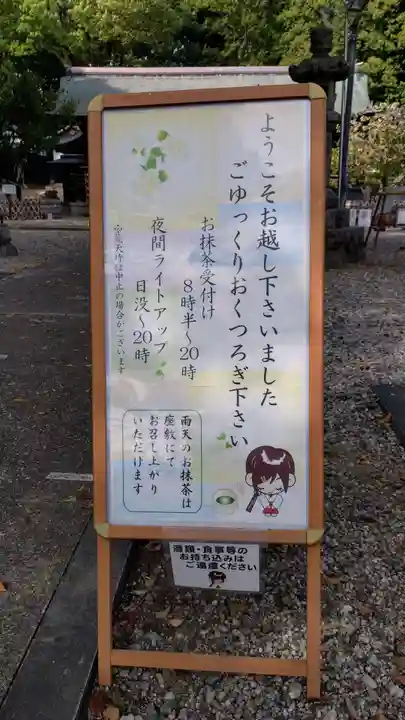 ようこそお越し下さいました
ごゆっくりおくつろぎ下さい
お抹茶受付け
8時半～20時
夜間ライトアップ
日没～20時
※荒天時は中止の場合がございます
雨天のお抹茶は
座敷にて
お召し上がり
いただけます
酒類・食事等の
お持ち込みは
ご遠慮ください